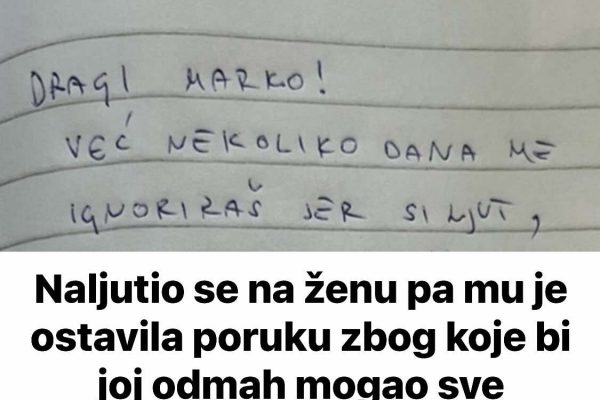 DRAGI MARKO!
VEĆ NEKOLIKO DANA ME
IGNORIRAŠ JER SI LJUT,
Naljutio se na ženu pa mu je
ostavila poruku zbog koje bi
joj odmah mogao sve